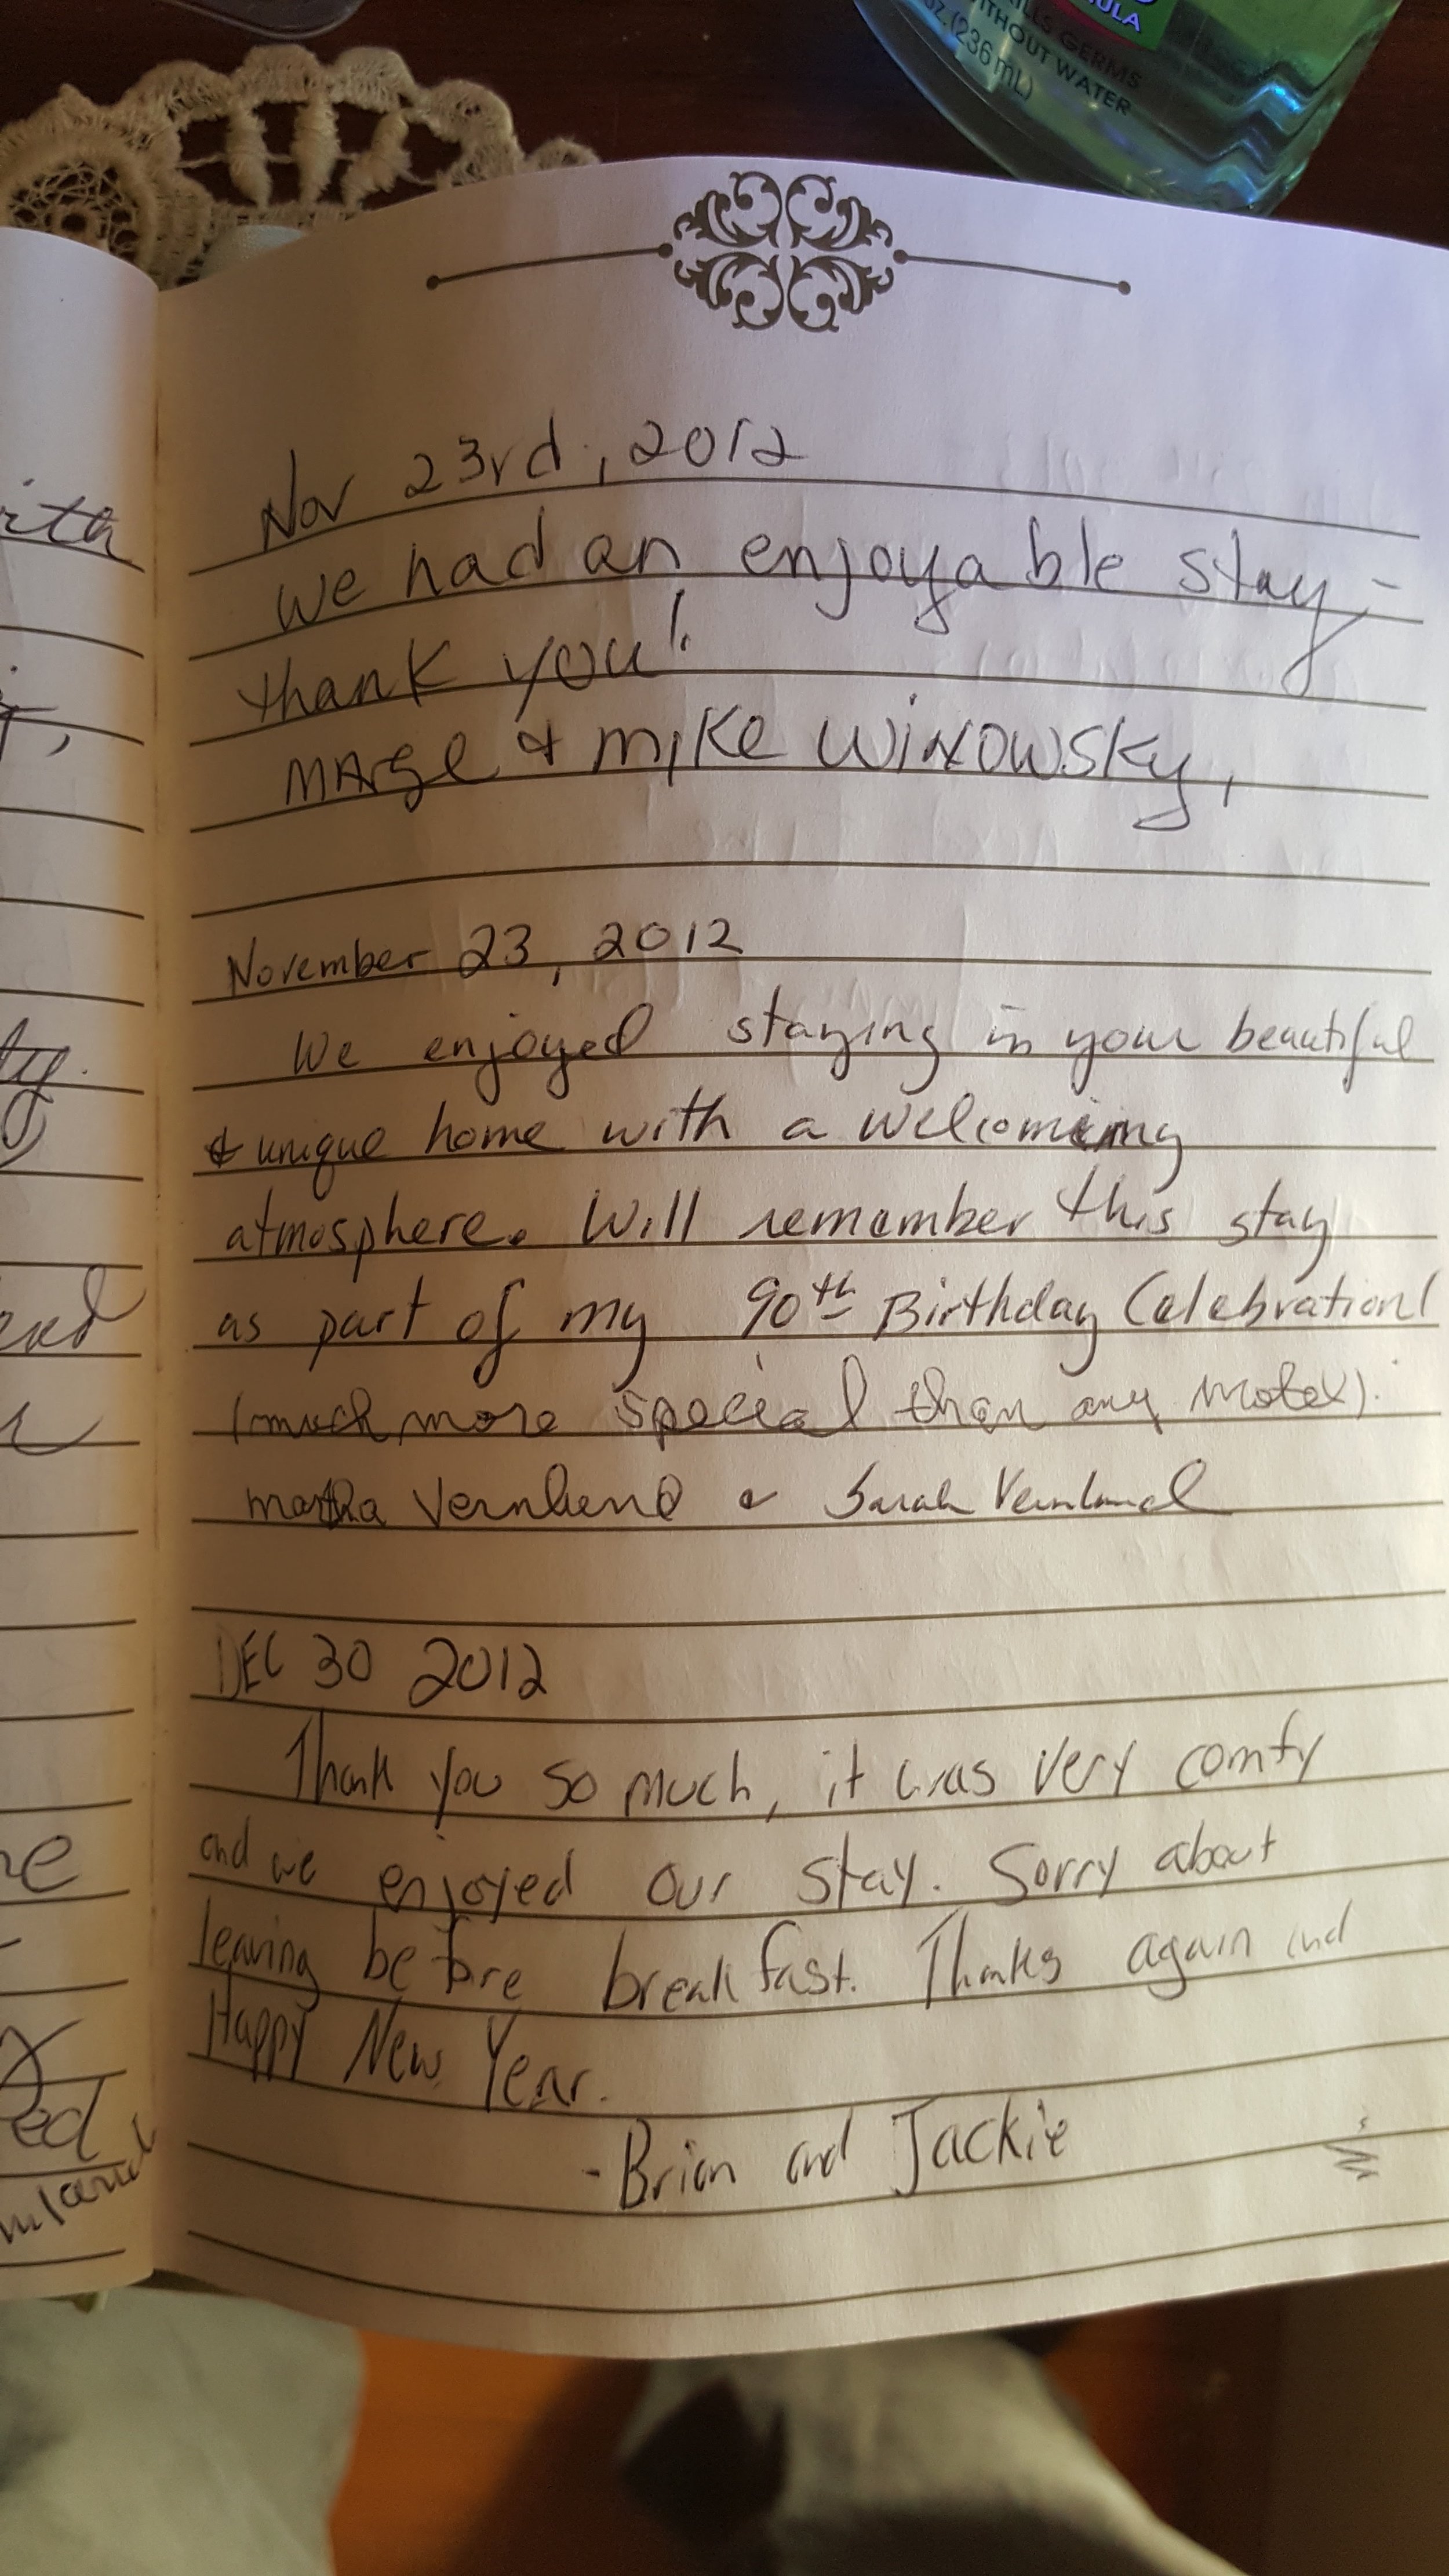 ULA
KILLS GERMS
WITHOUT WATER
oz. (236 mL)
Nov 23rd, 2012
We had an enjoyable stay -
thank you!
MARge & Mike WiNOWSKy,
November 23, 2012
We enjoyed staying in your beautiful
& unique home with a welcoming
atmosphere. Will remember this stay
as part of my 90th Birthday Celebration!
(much more special than any motel).
Martha Vernlund & Sarah Vernlund
DEC 30 2012
Thank you so much, it was very comfy
and we enjoyed our stay. Sorry about
leaving before breakfast. Thanks again and
Happy New Year.
- Brian and Jackie